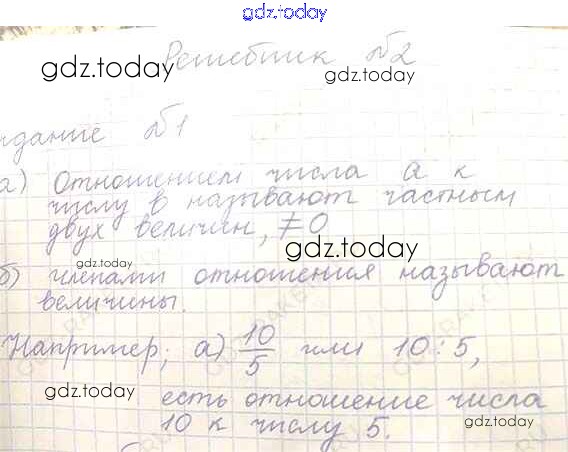 gdz.today
Решебник №2
gdz.today
gdz.today
адание №1
а) Отношением числа a к
числу в называют частным
двух величин, ≠0
gdz.today
gdz.today
б) членами отношения называют
величины.
Например; а) 10/5 или 10:5,
gdz.today
есть отношение числа
10 к числу 5.
gdz.today